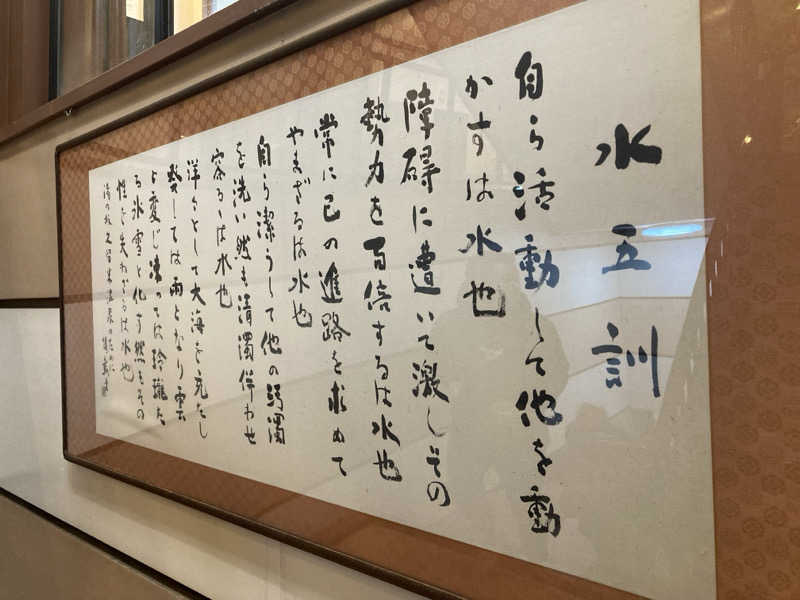 水五訓
自ら活動して他を動
かすは水也
障碍に遭いて激しその
勢力を百倍するは水也
常に己の進路を求めて
やまざるは水也
自ら潔うして他の汚濁
を洗い然も清濁伴わせ
容るゝは水也
洋々として大海を充たし
發しては雨となり雲
と変じ凍っては玲瓏た
る氷雪と化す然もその
性を失わざるは水也